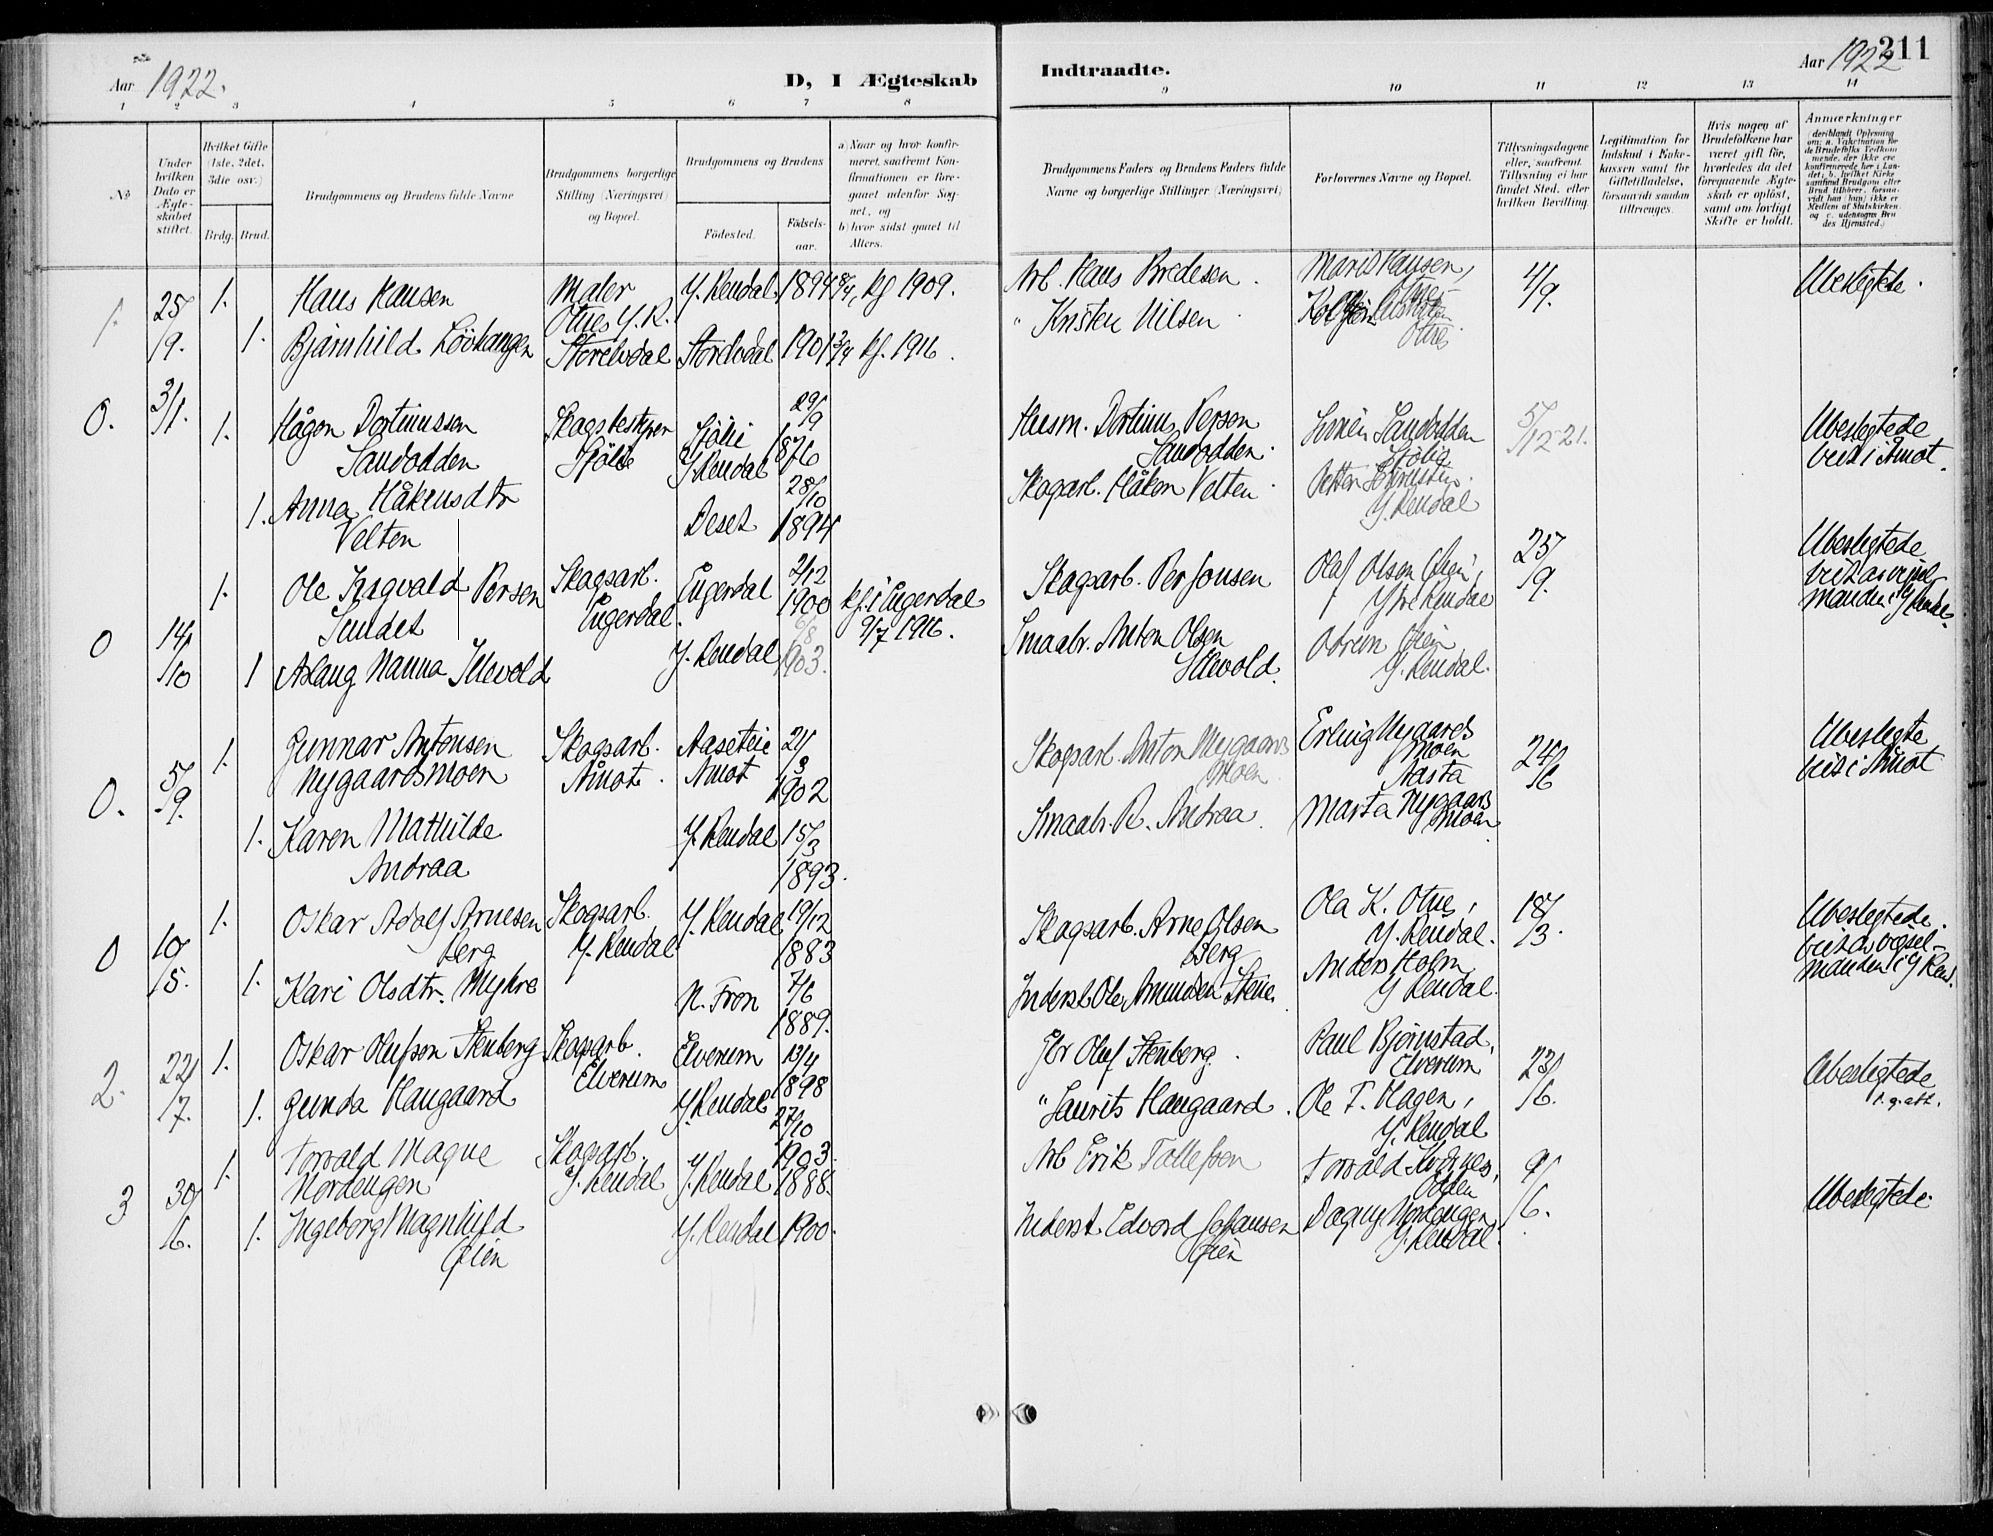 Aar 1922.
D, I Ægteskab
Indtraadte.
Aar 1922
211
1 2 3 4 5 6 7 8 9 10 11 12 13 14
No
Under hvilken Dato er Ægteskabet stiftet.
Hvilket Gifte (1ste, 2det, 3die osv.)
Brdg. Brud.
Brudgommens og Brudens fulde Navne
Brudgommens borgerlige Stilling (Næringsvei) og Bopæl.
Brudgommens og Brudens
Födested.
Födselsaar.
a) Naar og hvor konfirmeret, saafremt Konfirmationen er foregaaet udenfor Sognet, og
b) hvor sidst gaaet til Alters.
Brudgommens Faders og Brudens Faders fulde Navne og borgerlige Stillinger (Næringsvei)
Forlovernes Navne og Bopæl.
Tillysningsdagene eller, saafremt Tillysning ei har fundet Sted, efter hvilken Bevilling.
Legitimation for Indskud i Enkekassen samt for Giftetilladelse, forsaavidt saadan tiltrænges.
Hvis nogen af Brudefolkene har været gift för, hvorledes da det foregaaende Ægteskab er oplöst, samt om lovligt Skifte er holdt.
Anmærkninger
(deriblandt Oplysning om: a. Vakcination for de Brudefolks Vedkommende, der ikke ere konfirmerede her i Landet; b. hvilket Kirkesamfund Brudgom eller Brud tilhörer, forsaavidt han (hun) ikke er Medlem af Statskirken, og c. udensogns Brudes Hjemsted.)
1. 25/9. 1. Hans Hansen Maler Otnes Y. R. Y. Rendal 1894 kf 1909. Arb. Hans Bredesen. Maris Hansen, 4/9. Ubesligtede.
1. Bjarnhild Lövhangen Storelvdal Storelvdal 1901 kf. 1916. " Kristen Nilsen Otnes
0. 3/1. 1. Hågon Dortinussen Sandodden Skogsbestyrer Sjölie Sjölie Y. Rendal 29/9 1876 Husm. Dortinus Persen Sandodden. Sandodden Sjölie 5/12-21. Ubeslegtede viet i Åmot.
1. Anna Håkensdtr Velten Deset 28/10 1894 Skogarb. Håkon Velten Y. Rendal
0 14/10 1. Ole Ingvald Persen Sundet Skogsarb. Engerdal Engerdal 2/12 1900 kf. i Engerdal 9/7 1916. Skogsarb. Per Jonsen Olaf Olsen Øien, Ytre Rendal 25/9. Ubeslegtede viet av vigselmanden i Y Rendal.
1 Aslaug Nanna Illevold Y. Rendal 6/8 1903. Smaabr. Anton Olsen Illevold. Øien Y. Rendal.
0. 5/9. 1. Gunnar Antonsen Nygaardsmoen Skogsarb. Åmot. Aaseteie Amot 21/3 1902 Skogsarb. Anton Nygaardsmoen. Erling Nygaardsmoen Aasta 24/6 Ubeslegte viet i Åmot
1. Karen Mathilde Andraa Y. Rendal 15/3 1893. Smaabr. R. Andraa. Marta Nygaardsmoen
0 10/5. 1. Oskar Adolf Arnesen Berg Skogsarb. Y. Rendal Y. Rendal 19/12 1883 Skogsarb. Arne Olsen Berg Ola K. Otnes, Y. Rendal. 18/3. Ubeslegtede. viet av vigselmanden i Y Rend.
1. Kari Olsdtr. Myhre N. Fron 7/6 1889. Inderst Ole Amundsen Anders Holm, Y Rendal.
2. 22/7. 1. Oskar Olufson Stenberg Skogsarb. Elverum Elverum 13/4 1898 Gbr Oluf Stenberg. Paul Bjørnstad, Elverum 23/6. Ubeslegtede
1. Gunda Haugaard Y. Rendal 27/10 1903. " Laurits Haugaard. Ole T. Hagen, Y. Rendal
3 30/6. 1. Torvald Magne Nordengen Skogsarb. Y. Rendal Y. Rendal 1888. Arb Erik Tollefsen Torvald 9/6. Ubeslegtede.
1. Ingeborg Magnhild Øien Y. Rendal 1900. Inderst. Edvard Johansen Øien Dagny Nordengen, Y. Rendal.